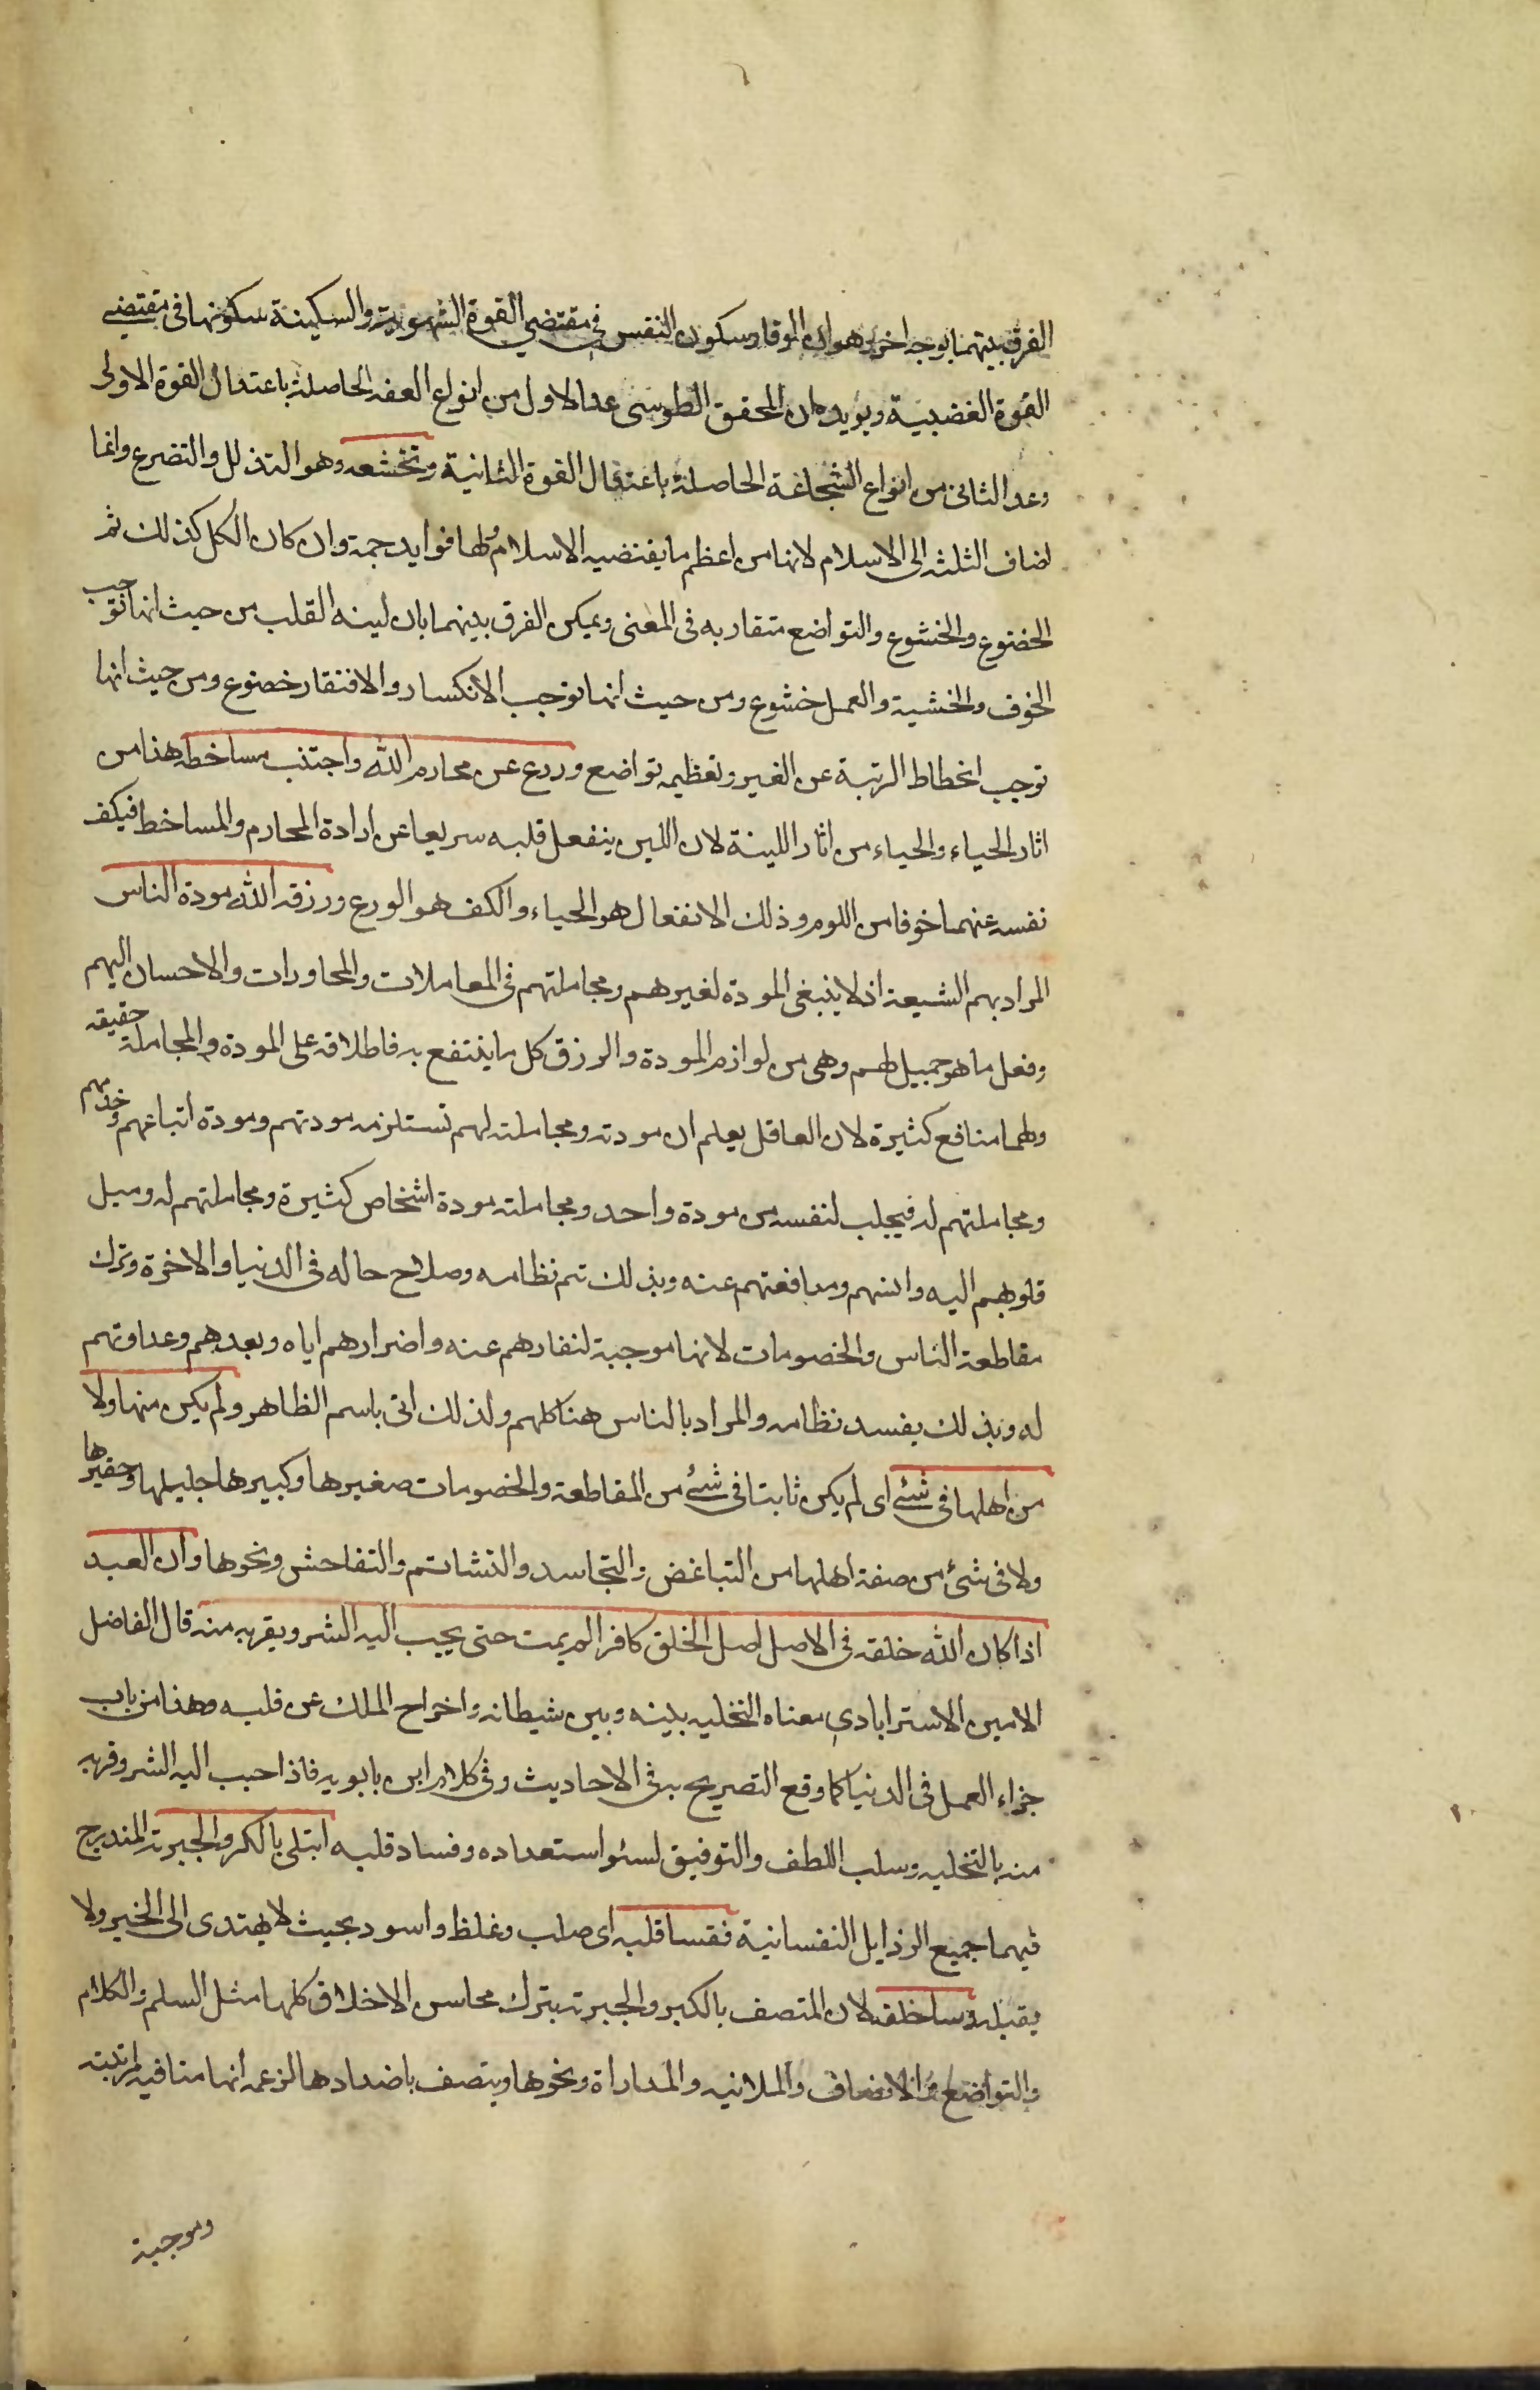 الفرق بينهما بوجه اخر وهو ان الوقار سكون النفس في مقتضي القوة الشهوية والسكينة سكونها في مقتضي
القوة الغضبية ويؤيده ان المحقق الطوسي عد الاول من انواع العفه الحاصلة باعتدال القوة الاولى
وعد الثاني من انواع الشجاعة الحاصلة باعتدال القوة الثانية وتخشعه وهو التذلل والتضرع وانما
اضاف الثلثه الى الاسلام لانها من اعظم ما يقتضيه الاسلام ولها فوايد جمة وان كان الكل كذلك ثم
الخضوع والخشوع والتواضع متقاربه في المعنى ويمكن الفرق بينهما بان لينه القلب من حيث انها توجب
الخوف والخشية والعمل خشوع ومن حيث انها توجب الانكسار والافتقار خضوع ومن حيث انها
توجب انحطاط الرتبة عن الغير وتعظيمه تواضع وورع عن محارم الله واجتنب مساخطه هذا من
اثار الحياء والحياء من اثار اللينة لان اللين ينفعل قلبه سريعا عن ارادة المحارم والمساخط فيكف
نفسه عنهما خوفا من اللوم وذلك الانفعال هو الحياء والكف هو الورع ورزقه الله مودة الناس
المراد بهم الشيعة اذ لا ينبغي المودة لغيرهم ومجاملتهم في المعاملات والمحاورات والاحسان اليهم
وفعل ما هو جميل لهم وهي من لوازم المودة والرزق كل ما ينتفع به فاطلاقه على المودة والمجاملة حقيقه
ولهما منافع كثيرة لان العاقل يعلم ان مودته ومجاملته لهم تستلزمه مودتهم ومودة اتباعهم وخدمهم
ومجاملتهم له فيجلب لنفسه من مودة واحد ومجاملته مودة اشخاص كثيرة ومجاملتهم له وميل
قلوبهم اليه وانسهم ومدافعتهم عنه وبذلك تم نظامه وصلاح حاله في الدنيا والاخرة وترك
مقاطعة الناس والخصومات لانها موجبة لنفارهم عنه واضرارهم اياه وبعدهم وعداوتهم
له وبذلك يفسد نظامه والمراد بالناس هنا كلهم ولذلك اتى باسم الظاهر ولم يكن منها ولا
من اهلها في شئ اى لم يكن ثابتا في شئ من المقاطعة والخصومات صغيرها وكبيرها جليلها وحقيرها
ولا في شئ من صفة اهلها من التباغض والتحاسد والتشاتم والتفاحش ونحوها وان العبد
اذا كان الله خلقه في الاصل اصل الخلق كافرا لم يمت حتى يحبب اليه الشر ويقربه منه قال الفاضل
الامين الاسترابادي معناه التخليه بينه وبين شيطانه واخراج الملك عن قلبه وهذا من باب
جزاء العمل في الدنيا كما وقع التصريح به في الاحاديث وفي كلام ابن بابويه فاذا احبب اليه الشر وقربه
منه بالتخليه وسلب اللطف والتوفيق لسئو استعداده وفساد قلبه ابتلى بالكبر والجبرية المندرج
فيهما جميع الرذايل النفسانية فقسا قلبه اى صلب وغلظ واسود بحيث لا يهتدى الى الخير ولا
يقبله وساء خلقه لان المتصف بالكبر والجبرية يترك محاسن الاخلاق كلها مثل السلم والكلام
والتواضع والانصاف والملاينه والمداراة ونحوها ويتصف باضدادها لزعمه انها منافيه لمرتبته
وموجبة